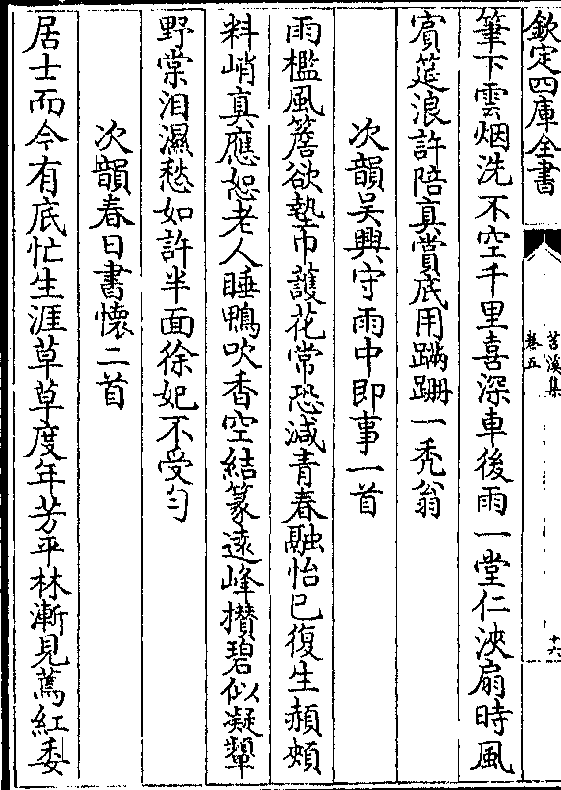 欽定四庫全書
苕溪集
卷五
十六
筆下雲烟洗不空千里喜深車後雨一堂仁泱扇時風
賔筵浪許陪真賞底用蹣跚一禿翁
次韻吴興守雨中即事一首
雨檻風簷欲墊巾護花常恐減青春融怡已復生頳頰
料峭真應恕老人睡鴨吹香空結篆遠峰攅碧似凝顰
野棠淚濕愁如許半面徐妃不受匀
次韻春日書懷二首
居士而今有底忙生涯草草度年芳平林漸見蔫紅委